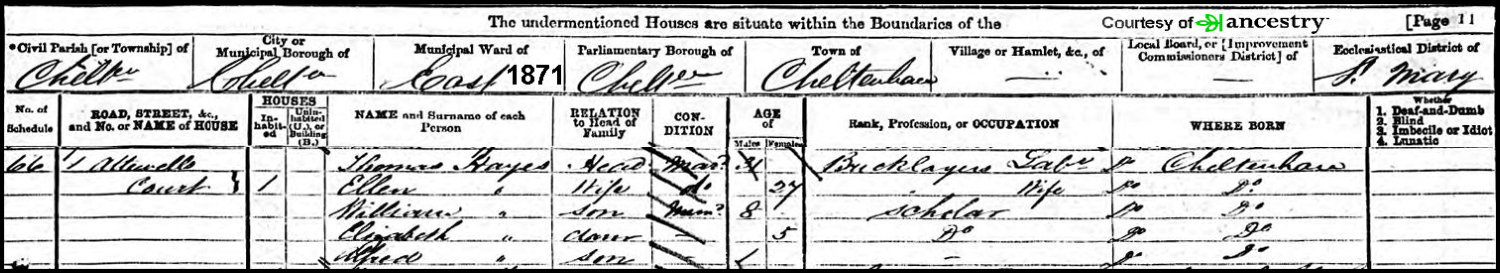 The undermentioned Houses are situate within the Boundaries of the Courtesy of ancestry [Page 11
*Civil Parish [or Township] of City or Municipal Borough of Municipal Ward of Parliamentary Borough of Town of Village or Hamlet, &c., of Local Board, or [Improvement Commissioners District] of Ecclesiastical District of
East 1871 Cheltenham — — St. Mary
No. of Schedule ROAD, STREET, &c., and No. or NAME of HOUSE HOUSES Inhabited Uninhabited (U.), or Building (B.) NAME and Surname of each Person RELATION to Head of Family CONDITION AGE of Males Females Rank, Profession, or OCCUPATION WHERE BORN Whether
1. Deaf-and-Dumb
2. Blind
3. Imbecile or Idiot
4. Lunatic
66 Thomas Hayes Head Mar. 31 Bricklayers Labr Do Cheltenham
Court } 1 Ellen " Wife do 27 Wife Do Do
William " son 8 Scholar Do Do
Elizabeth " daur — 5 Do Do Do
Alfred " son — 1 — Do Do